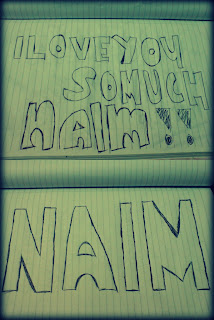 I LOVE YOU
SO MUCH
NAIM!!
NAIM